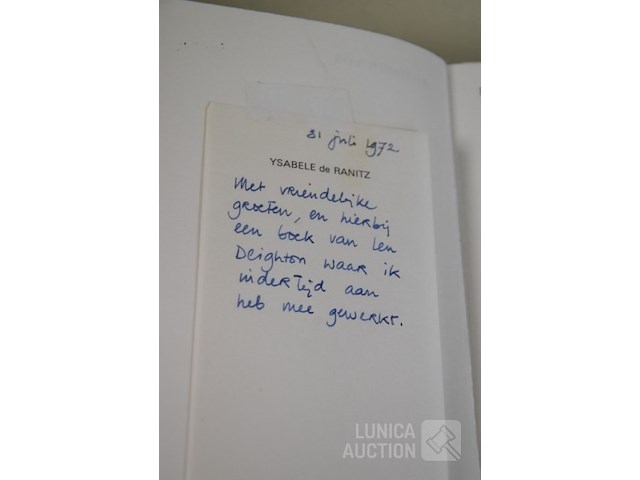 31 juli 1972
YSABELE de RANITZ
Met vriendelijke
groeten, en hierbij
een boek van Len
Deighton waar ik
indertijd aan
heb mee gewerkt.
LUNICA
AUCTION